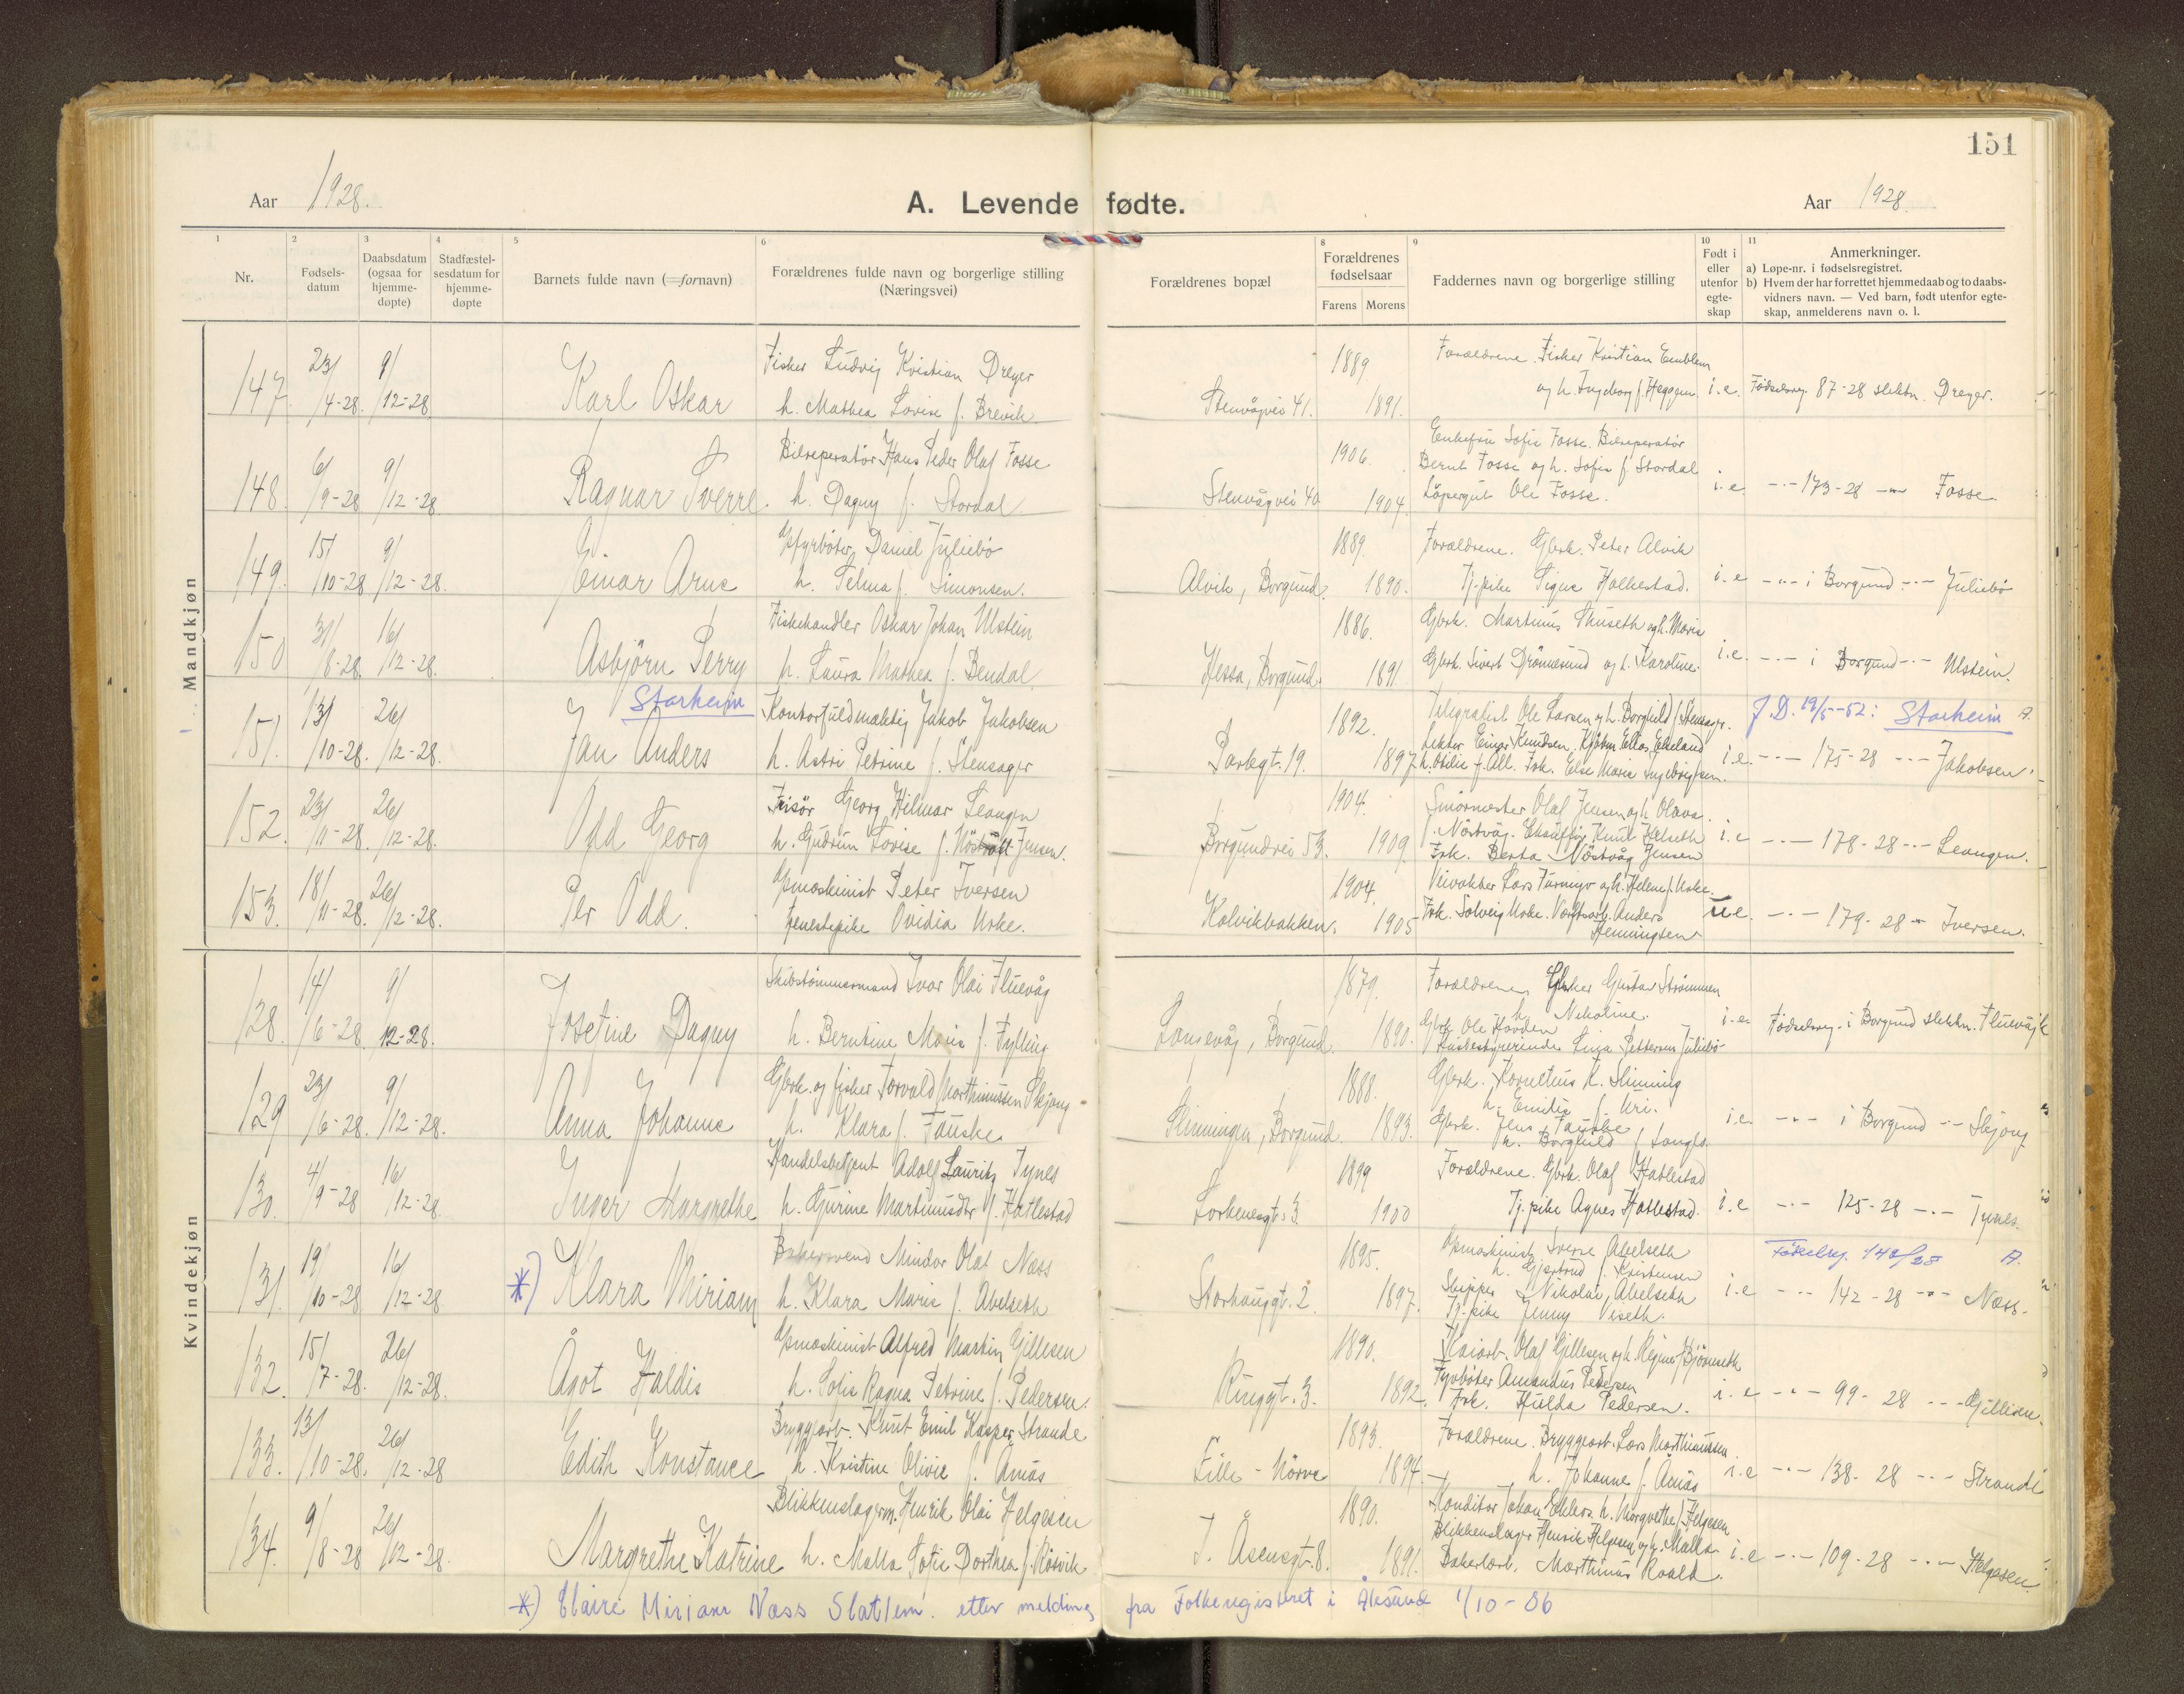 151
Aar 1928.
A. Levende fødte.
Aar 1928.
1 2 3 4 5 6 8 9 10 11
Nr.
Fødsels-
datum
Daabsdatum
(ogsaa for
hjemme-
døpte)
Stadfæstel-
sesdatum for
hjemme-
døpte
Barnets fulde navn (=fornavn)
Forældrenes fulde navn og borgerlige stilling
(Næringsvei)
Forældrenes bopæl
Forældrenes
fødselsaar
Farens Morens
Faddernes navn og borgerlige stilling
Født i
eller
utenfor
egte-
skap
Anmerkninger.
a) Løpe-nr. i fødselsregistret.
b) Hvem der har forrettet hjemmedaab og to daabs-
vidners navn. — Ved barn, født utenfor egte-
skap, anmelderens navn o. l.
Mandkjøn
147. 23/4-28. 9/12-28 Karl Oskar
Fisker Ludvig Kristian Dreyer
h. Mathea Lovise f. Brevik.
Stenvågvei 41. 1889 1891.
Forældrene. Fisker Kristian Emblem
og h. Ingeborg f. i.e. Fødselsreg. 87-28 slektn. Dreyer.
148. 6/9-28 9/12-28 Ragnar Sverre.
Bilreperatør Hans Peder Olaf Fosse
h. Dagny f. Stordal
Stenvågvei 40 1906. 1904.
Enkefru Sofie Fosse. Bilreperatør
Bernt Fosse og h. Sofie f. Stordal
Löpergut Ole Fosse. i.e. -"- 173-28 -"- Fosse
149. 15/10-28 9/12-28. Einar Arne
Daniel Juliebö
h. Telma f. Simonsen.
Alvik, Borgund. 1889. 1890.
Forældrene. Gbrk. Peter Alvik
Tj.pike Signe Holkestad. i.e. -"- i Borgund -"- Juliebö
150 31/8-28. 16/12-28. Asbjörn Perry
Fiskehandler Oskar Johan Ulstein
h. Laura Mathea f. Bendal
Hessa, Borgund. 1886. 1891
Gbrk. Martinus Thuseth og h. Marie
Gbrk. Sivert Drönnesund og h. Karoline. i.e. -"- i Borgund -"- Ulstein.
151. 13/10-28. 26/12-28. Jan Anders
Starheim
Kontorfuldmæktig Jakob Jakobsen
h. Astri Petrine f. Stensager
Parkgt. 19. 1892. 1897
Telegrafist Ole Larsen og h. Borghild f. Stensager.
Lektor Einar Knudsen. Kjöbm. Elias Ekeland
h. Otilie f. All. Frk. Else Marie Ingebrigtsen. i.e. -"- 175-28 -"- Jakobsen.
J.D. 19/5-52: Starheim A.
152. 23/11-28. 26/12-28. Odd Georg
Frisör Georg Hilmar Leangen
h. Gudrun Lovise f. Jensen.
Borgundvei 53. 1904. 1909.
Smörmester Olaf Jensen og h. Olava
f. Nöstvåg. Chauffør Knut Helseth
Frk. Berta Nöstvåg Jensen i.e -"- 178-28 -"- Leangen.
153. 18/11-28. 26/12-28. Per Odd.
Peter Iversen
tjenestepike Ovidia Urke.
Kolvikbakken. 1904. 1905
Veivokter Lars og h. Helene f. Urke.
Frk. Solveig Urke. Anders
Henningsen u.e. -"- 179-28 -"- Iversen.
Kvindekjøn
128. 14/6-28. 9/12-28. Josefine Dagny
Skibstømmermand Ivar Olai Fluevåg
h. Berntine Marie f. Fylling
Borgund. 1879. 1890.
Forældrene. Gustav Strömmen
h. Nikoline.
Gbrk. Ole Hovden
Husbestyrerinde Lina Pettersen Juliebö i.e. Fødselsreg. i Borgund slektn. Fluevåg
129 23/6-28. 9/12-28. Anna Johanne
Gbrk. og fisker Torvald Marthinussen Skjong
h. Klara f. Fauske
Slinningen, Borgund. 1888. 1893.
Gbrk. Kornelius K. Slinning
h. Emilie f. Uri.
Gbrk. Jens Fauske
h. Borghild f. Langlo. i.e. -"- i Borgund -"- Skjong
130. 4/9-28 16/12-28. Inger Margrethe
Handelsbetjent Adolf Lauritz Tynes
h. Gurine Martinusdtr f. Hatlestad
Lorkenesgt. 3 1899 1900
Forældrene. Gbrk. Olaf Hatlestad
Tj.pike Agnes Hatlestad. i.e -"- 125-28 -"- Tynes.
131. 19/10-28. 16/12-28 *) Klara Miriam
Bakersvend Mindor Olai Næss
h. Klara Marie f. Abelseth
Storhauggt. 2. 1895. 1897.
Sverre Abelseth
h. Gjertrud f. Kristensen
Skipper Nikolai Abelseth
Tj.pike Jenny Viseth. i.e -"- 142-28 -"- Næss.
Fødselsreg. 142/28 A.
132. 15/7-28. 26/12-28. Ågot Haldis
Alfred Martin Gillesen
h. Sofie Ragna Petrine f. Pedersen.
Ringgt. 3. 1890. 1892.
Kaiarb. Olaf Gillesen og h. Regine f. Bjönseth
Fyrböter Amandus Pedersen
Frk. Hulda Pedersen. i.e -"- 99-28 -"- Gillesen.
133. 13/10-28. 26/12-28 Edith Konstance
Bryggearb. Knut Emil Kasper Strande
h. Kristine Olivie f. Amås
Lille-Nörve 1893. 1894
Forældrene. Bryggearb. Lars Marthinussen
h. Johanne f. Amås i.e -"- 138-28 -"- Strande
134. 9/8-28 26/12-28. Margrethe Katrine
Blikkenslagerm. Henrik Olai Helgesen
h. Malla Sofie Dorthea f. Rösvik
I. Åsensgt. 8. 1890. 1891.
Konditor Johan Ehlers. h. Margrethe f. Helgesen
Blikkenslager Henrik Helgesen og h. Malla.
Bakerlærl. Marthinus Roald. i.e -"- 109-28 -"- Helgesen
*) Claire Miriam Næss Slatlem. etter melding fra Folkeregisteret i Ålesund 1/10-86